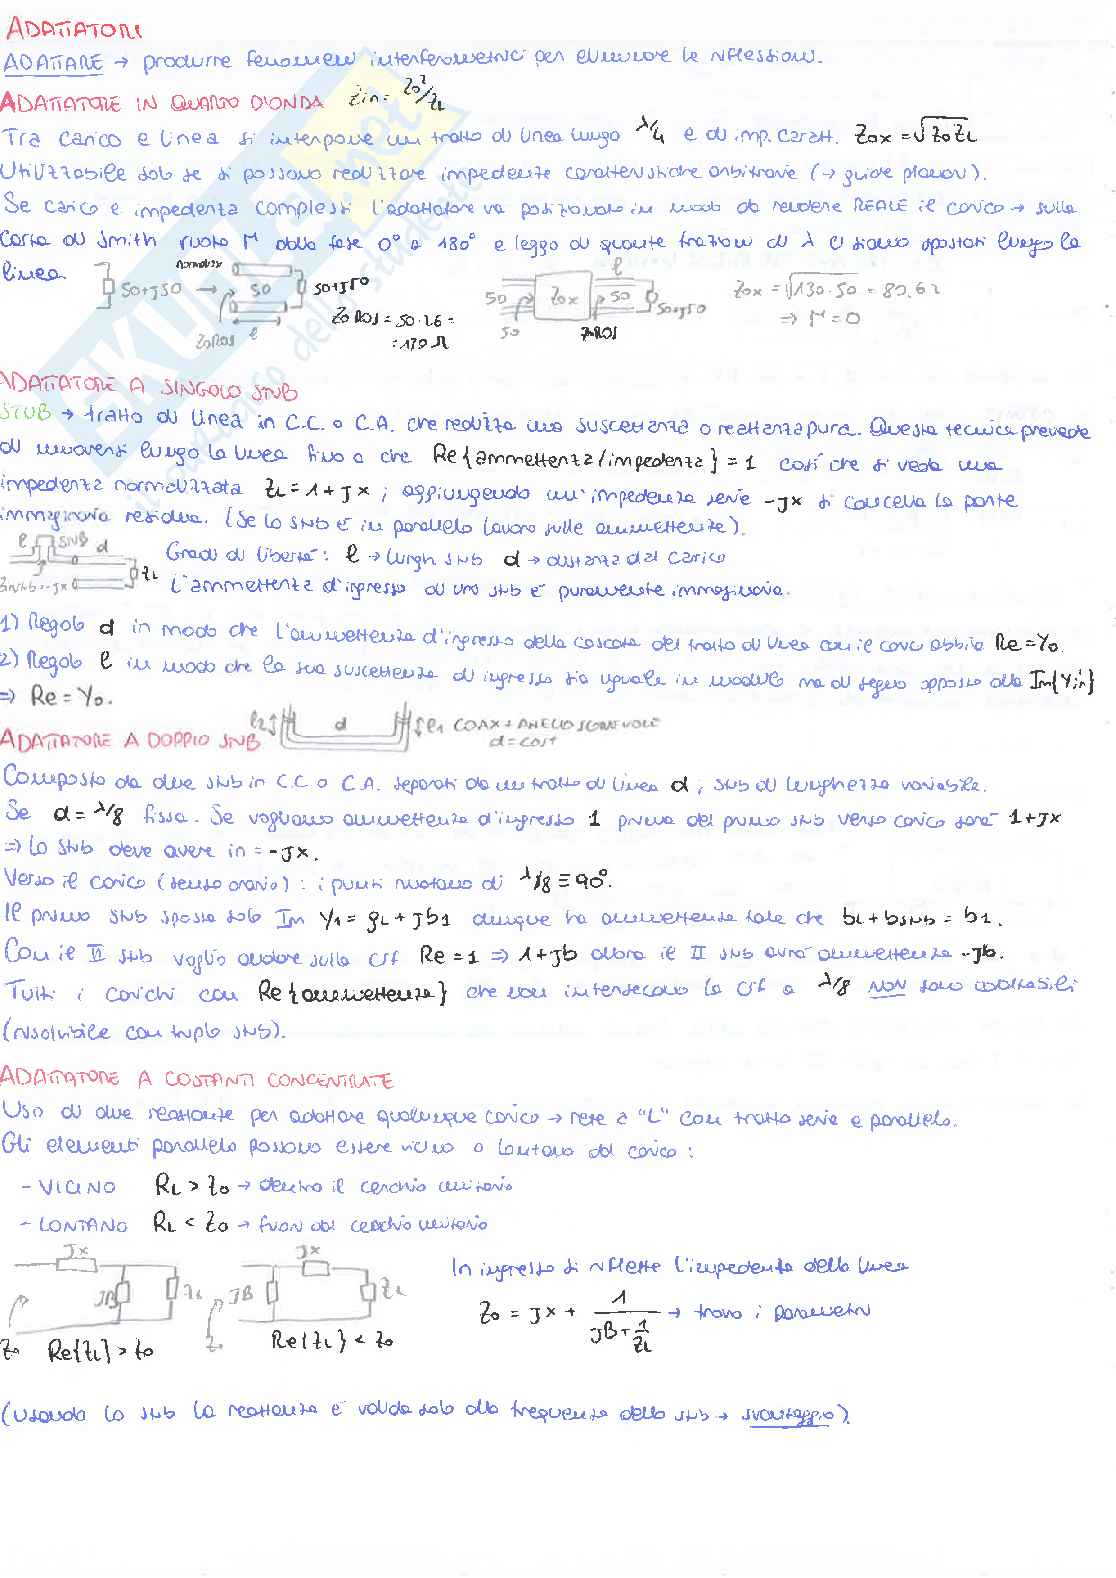 ADATTATORI
ADATTARE → produrre fenomeni interferometrici per eliminare le riflessioni.
ADATTATORE IN QUARTO D'ONDA Zin = Z0²/ZL
Tra carico e linea si interpone un tratto di linea lungo λ/4 e di imp. caratt. Z0x = √Z0ZL
Utilizzabile solo se si possono realizzare impedenze caratteristiche arbitrarie (→ guide planari).
Se carico è impedenza complessa l'adattatore va posizionato in modo da rendere REALE il carico → sulla
Carta di Smith ruoto Γ dalla fase 0° a 180° e leggo di quante frazioni di λ ci siamo spostati lungo la
linea.
50+J50 → normalizzo 50 50+J50
Z0 ROS l
Z0 ROS = 50·2.6 =
= 130 Ω
50 Z0x 50 l 50+J50
50 Z0ROS
Z0x = √130·50 = 80.62
⇒ Γ=0
ADATTATORE A SINGOLO STUB
STUB → tratto di linea in C.C. o C.A. che realizza una suscettanza o reattanza pura. Questa tecnica prevede
di muoversi lungo la linea fino a che Re{ammettenza/impedenza} = 1 così che si veda una
impedenza normalizzata ZL = 1 + Jx ; aggiungendo un'impedenza serie -Jx si cancella la parte
immaginaria residua. (Se lo stub è in parallelo lavoro sulle ammettenze).
l STUB d
ZL
Zinstub=-Jx
Gradi di libertà: l → lungh stub d → distanza dal carico
L'ammettenza d'ingresso di uno stub è puramente immaginaria.
1) Regolo d in modo che l'ammettenza d'ingresso della cascata del tratto di linea con il carico abbia Re=Y0.
2) Regolo l in modo che la sua suscettanza di ingresso sia uguale in modulo ma di segno opposto alla Im{Yin}
⇒ Re = Y0.
l2 d l1 COAX + ANELLO SCORREVOLE
d = cost
ADATTATORE A DOPPIO STUB
Composto da due stub in C.C o C.A. separati da un tratto di linea d ; stub di lunghezza variabile.
Se d = λ/8 fissa. Se vogliamo ammettenza d'ingresso 1 prima del primo stub verso carico sarà 1+Jx
⇒ Lo stub deve avere in = -Jx.
Verso il carico (senso orario) : i punti ruotano di λ/8 ≡ 90°.
Il primo stub sposta solo Im Y1 = gL + Jb1 dunque ha ammettenza tale che bL + bstub = b1.
Con il II stub voglio andare sulla crf Re = 1 ⇒ 1+Jb allora il II stub avrà ammettenza -Jb.
Tutti i carichi con Re{ammettenza} che non intersecano la crf a λ/8 NON sono adattabili
(risolvibile con triplo stub).
ADATTATORE A COSTANTI CONCENTRATE
Uso di due reattanze per adattare qualunque carico → rete a "L" con tratto serie e parallelo.
Gli elementi parallelo possono essere vicino o lontano dal carico :
- VICINO RL > Z0 → dentro il cerchio unitario
- LONTANO RL < Z0 → fuori dal cerchio unitario
Jx JB ZL
Z0 Re{ZL} > Z0
Jx JB ZL
Z0 Re{ZL} < Z0
In ingresso si riflette l'impedenza della linea
Z0 = Jx + 1/(JB + 1/ZL) → trovo i parametri
(usando lo stub la reattanza è valida solo alla frequenza dello stub → svantaggio).